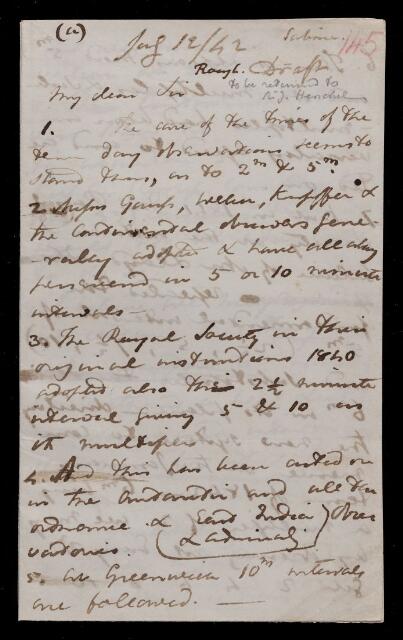 (a)
July 12/42
Sabine.
145
Rough. Draft
to be returned to
Sir J. Herschel
My dear Sir
1. The case of the times of the
term day observations seems to
stand thus, as to 2m & 5m.
2. Messrs Gauss, Weber, Kupffer &
the continental observers gene
-rally adopted & have all along
persevered in 5 or 10 minute
intervals –
3. The Royal Society in their
original instructions 1840
adopted also the 2½ minute
interval giving 5 & 10 as
its multiples
4. And this has been acted on
in the Antarctic and all the
ordnance & (East India
& Admiralty) Obser
vatories.
5. At Greenwich 10m intervals
are followed. —